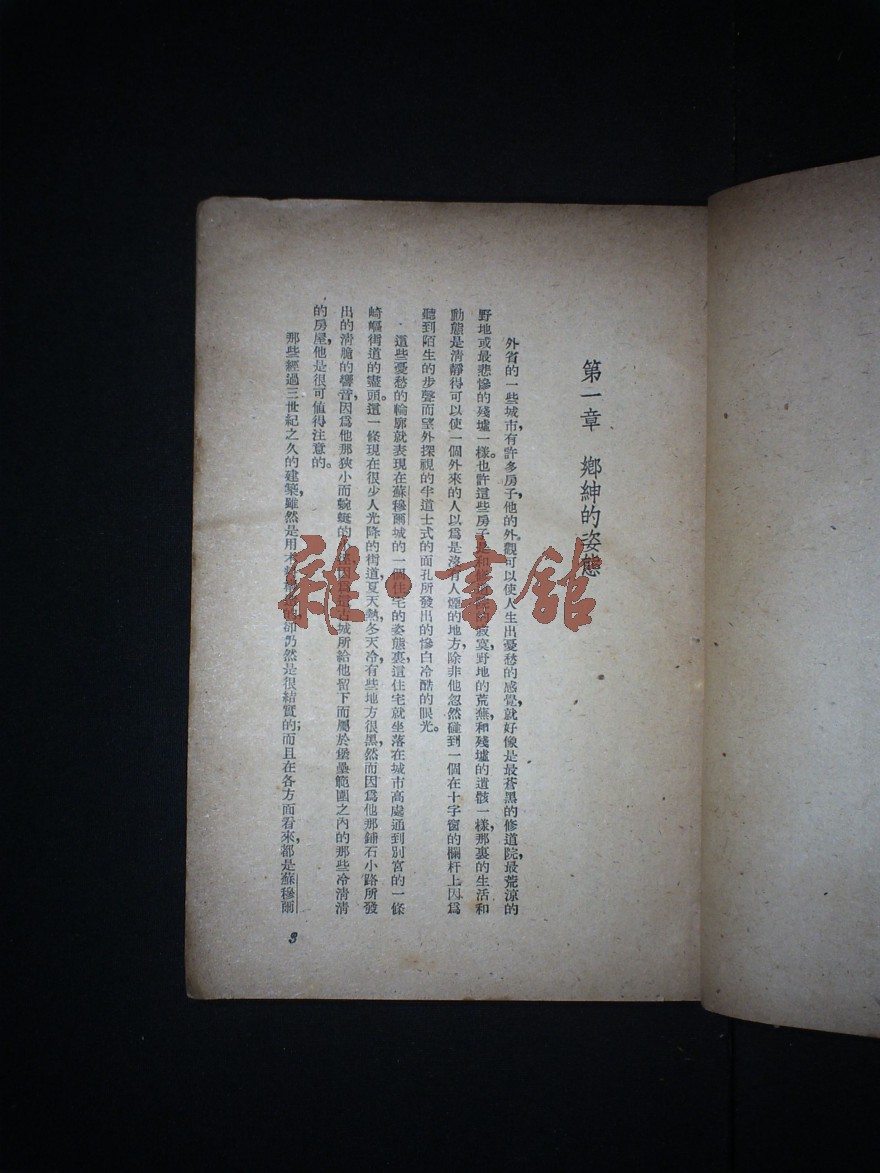 第一章 鄉紳的姿態
外省的一些城市,有許多房子,他的外觀可以使人生出憂愁的感覺,就好像是最蒼黑的修道院,最荒涼的
野地或最悲慘的殘墟一樣。也許這些房子是和修道院的寂寞野地的荒蕪和殘墟的遺骸一樣,那裏的生活和
動態是清靜得可以使一個外來的人以爲是沒有人煙的地方,除非他忽然碰到一個在十字窗的欄杆上因爲
聽到陌生的步聲而望外探視的半道士式的面孔所發出的慘白冷酷的眼光。
這些憂愁的輪廓就表現在蘇穆爾城的一個住宅的姿態裏,這住宅就坐落在城市高處通到別宮的一條
崎嶇街道的盡頭。這一條現在很少人光降的街道,夏天熱,冬天冷,有些地方很黑,然而因爲他那鋪石小路所發
出的清脆的響音,因爲他那狹小而蜿蜒的因爲這古城所給他留下而屬於堡壘範圍之內的那些冷清清
的房屋,他是很可值得注意的。
那些經過三世紀之久的建築,雖然是用木的卻仍然是很結實的;而且在各方面看來,都是蘇穆爾
3
雜·書舘